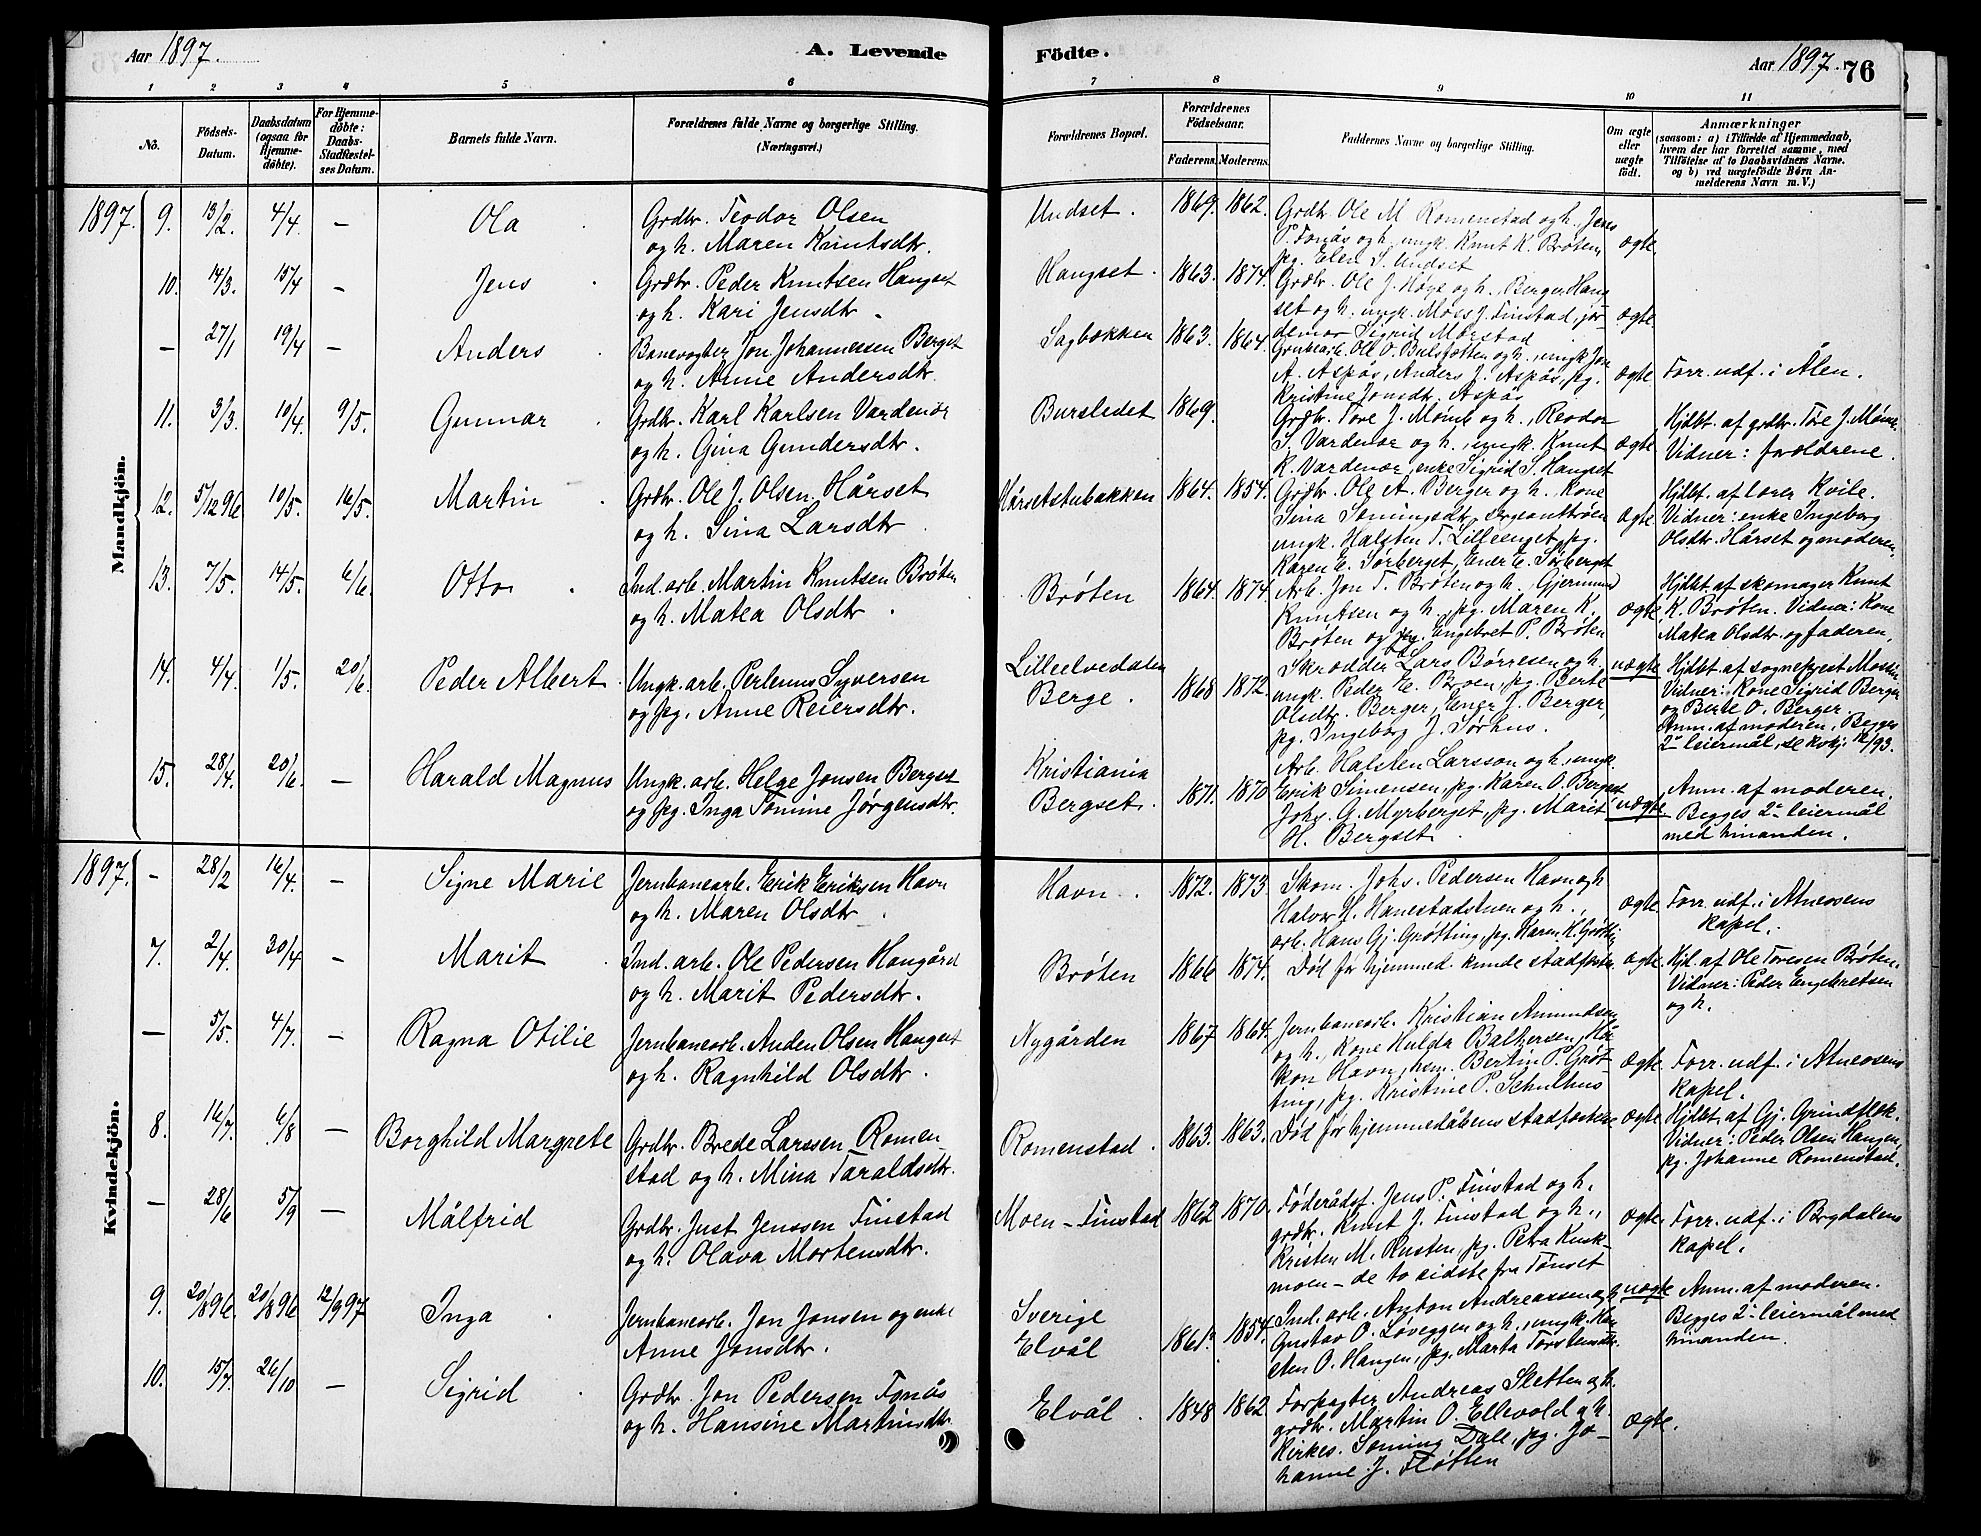 Aar 1897.
A. Levende
Födte.
Aar 1897.
76
1 2 3 4 5 6 7 8 9 10 11
No.
Födsels-
Datum.
Daabsdatum
(ogsaa for
Hjemme-
döbte).
For Hjemme-
döbte:
Daabs-
Stadfæstel-
ses Datum.
Barnets fulde Navn.
Forældrenes fulde Navne og borgerlige Stilling.
(Næringsvei.)
Forældrenes Bopæl.
Forældrenes
Födselsaar.
Faderens. Moderens.
Faddernes Navne og borgerlige Stilling.
Om ægte
eller
uægte
født.
Anmærkninger
(saasom: a) i Tilfælde af Hjemmedaab,
hvem der har forrettet samme, med
Tilföielse af to Daabsvidners Navne.
og b) ved uægtefödte Børn An-
melderens Navn m. V.)
Mandkjön.
1897. 9. 13/2. 4/4. — Ola
Grdbr. Teodor Olsen
og h. Maren Knutsdtr.
Undset. 1869. 1862.
Grdbr. Ole M. Romenstad og h., Jens
P. Fonås og h., ungk. Knut K. Brøten,
pg. Elen S. Undset
ægte.
10. 14/3. 15/4 — Jens
Grdbr. Peder Knutsen Hanget
og h. Kari Jensdtr.
Hangset. 1863. 1874.
Grdbr. Ole J. Høye og h., Berger Hang
set og h., ungk. Moss J. Finstad, jor-
demor Sigrid Mørstad
ægte.
— 27/1 19/4 — Anders
Banevogter Jon Johannessen Berget
og h. Anne Andersdtr.
Sagbakken 1863. 1864.
Grubearb. Ole O. Bulsjøtten og h., ungk Jon
A. Aspås, Anders J. Aspås, pg.
Kristine Jonsdt. Aspås
ægte
Forr. udf. i Ålen.
11. 3/3. 10/4. 9/5. Gunnar
Grdbr. Karl Karlsen Vardenær
og h. Gina Gundersdtr.
Bursledet 1869.
Grdbr. Tore J. Momb og h., Reodor
S. Vardenær og h., ungk. Knut
K. Vardenær, enke Sigrid S. Hangset
ægte
Hjdbt. af grdbr. Tore J. Møme.
Vidner: forældrene.
12. 5/12 96 10/5. 16/5. Martin
Grdbr. Ole J. Olsen Hårset
og h. Sina Larsdtr
Hårsetstubakken 1864. 1854.
Grdbr. Ole A. Berger og h. Kone
Sina
ungk. Halsten T. Lilleenget, pg.
Karen E. Sørberget, Ener E. Sørberget
ægte
Hjdbt. af lærer Kvile.
Vidner: enke Ingeborg
Olsdtr. Hårset og moderen.
13. 7/5. 14/5. 6/6. Otto
Ind. arb. Martin Knutsen Brøten
og h. Matea Olsdtr.
Brøten 1864. 1874.
Arb. Jon T. Brøten og h., Gjermund
Knutsen og h., pg. Maren K.
Brøten og Engebret P. Brøten
ægte
Hjdbt af skomager Knut
K. Brøten. Vidner: Kone
Matea Olsdtr. og faderen.
14. 4/4. 1/5. 20/6. Peder Albert
Ungk. arb. Perlenus Syversen
og pg. Anne Reiersdtr.
Lilleelvedalen
Berge. 1868 1872.
Skrædder Lars Børresen og h.
ungk. Peder E. Broen, pg. Berte
Olsdtr. Berger, Ener J. Berger,
pg. Ingeborg J. Sørhus.
uægte
Hjdbt. af sogneprest Mossin.
Vidner: Kone Sigrid Berger
og Berte O. Berger.
Anm. af moderen, Begges
2. leiermål, se kvkj. 12/93.
15. 28/4. 20/6. — Harald Magnus
Ungk. arb. Helge Jonsen Berget
og pg. Inga Tomine Jørgensdtr.
Kristiania
Bergset. 1871. 1870
Arb. Halsten Larsson og h., ungk.
Erik Simensen, pg. Karen O. Berget
Johs. G. Myrberget, pg. Marit
H. Bergset.
uægte.
Anm. af moderen.
Begges 2. leiermål
med hinanden.
Kvindekjön.
1897. — 28/2 16/4. — Signe Marie
Jernbanearb. Erik Eriksen Havn
og h. Maren Olsdtr.
Havn. 1872. 1873
Skom. Johs. Pedersen Havn og h
Halvor H. Hanestadstuen og h.,
arb. Hans Gj. Grøtting, pg. Karen K. Grøtting
ægte.
Forr. udf. i Atneosens
kapel.
7. 2/4. 30/4 — Marit
Ind. arb. Ole Pedersen Hangård
og h. Marit Pedersdtr.
Brøten 1866 1874.
Død før hjemmed. kunde stadfæstes.
ægte.
Hjd. af Ole Toresen Brøten.
Vidner: Peder Engebretsen
og h.
— 5/5. 4/7. — Ragna Otilie
Jernbanearb. Anden Olsen Hanget
og h. Ragnhild Olsdtr.
Nygården 1867 1864.
Jernbanearb. Kristian Amundsen
og h., Kone Hulda Baltzersen, Hå
kon Havn, hem. Bertin P. Grøt
ting, pg. Kristine P. Schulhus
ægte.
Forr. udf. i Atneosens
kapel.
8. 16/7. 6/8 — Borghild Margrete
Grdbr. Brede Larssen Romen-
stad og h. Mina Taraldsdtr.
Romenstad. 1863. 1863.
Død før hjemmedåbens stadfæstelse
ægte
Hjdbt. af Gj. Grindflek.
Vidner: Peder Olsen Hangen,
pg. Johanne Romenstad.
— 28/6 5/9 — Målfrid
Grdbr. Just Jenssen Finstad
og h. Olava Mortensdtr.
Moen - Finstad 1862 1870.
Føderådsf. Jens P. Finstad og h.
grdbr. Knut J. Finstad og h.,
Kristen M. Rusten, pg. Petra Kusk-
moen - de to sidste fra Tønset
ægte.
Forr. udf. i Brydalens
kapel.
9. 20/8 96 20/8 96 12/9 97 Inga
Jernbanearb. Jon Jonsen og enke
Anne Jonsdtr.
Sverige
Elvål 1861. 1854.
Ind. arb. Anton Andreassen og h
Gustav O. Løveggen og h., ungk. Ha-
sten O. Hangen, pg. Marta Torstensdtr.
uægte
Anm. af moderen.
Begges 2. leiermål med
hinanden.
10. 15/7. 26/10 — Sigrid
Grdbr. Jon Pedersen Fonås
og h. Hansine Martinsdtr.
Elvål. 1848 1862.
Forpagter Andreas Sletten og h.
grdbr. Martin O. Ellevold og h
Kirkes. Simling Dale, pg. Jo-
hanne J. Fløtten
ægte.